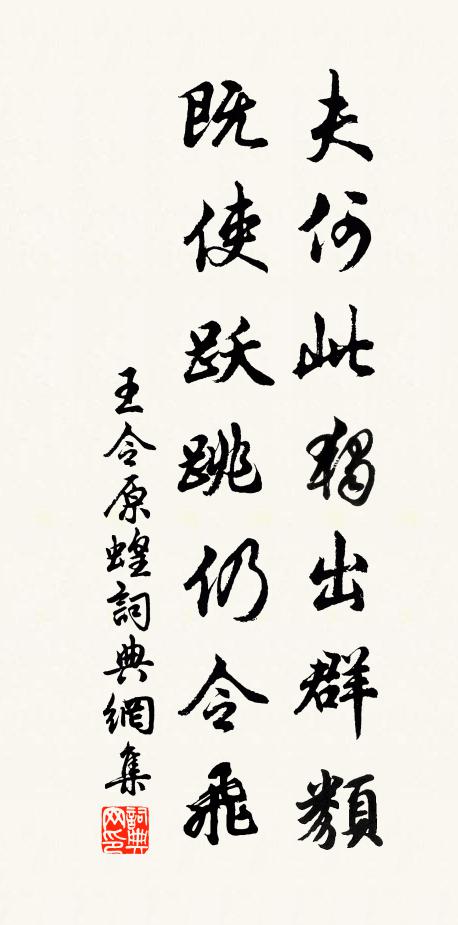 夫何此獨出群類
既使跃跳仍令飛
王令原蝗詞典網集
詞典网印